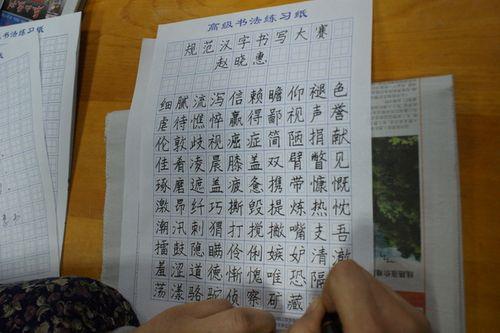 高级书法练习纸
规范汉字书写大赛
赵晓惠
细腻流泻信赖瞻仰褪色
虐待憔悴赢得鄙视声誉
伦敦歧视癌症简陋捐献
佳看凌晨膝盖双臂瞥见
琢磨遮盖疲惫携带慷慨
激昂纤巧撕毁提炼热忱
潮汛刺猬打搅撇嘴支吾
擂鼓隐瞒伶俐嫉妒清澈
羞涩道德惭愧唯恐隔
荡漾骆驼侦察矿藏
书法练习纸